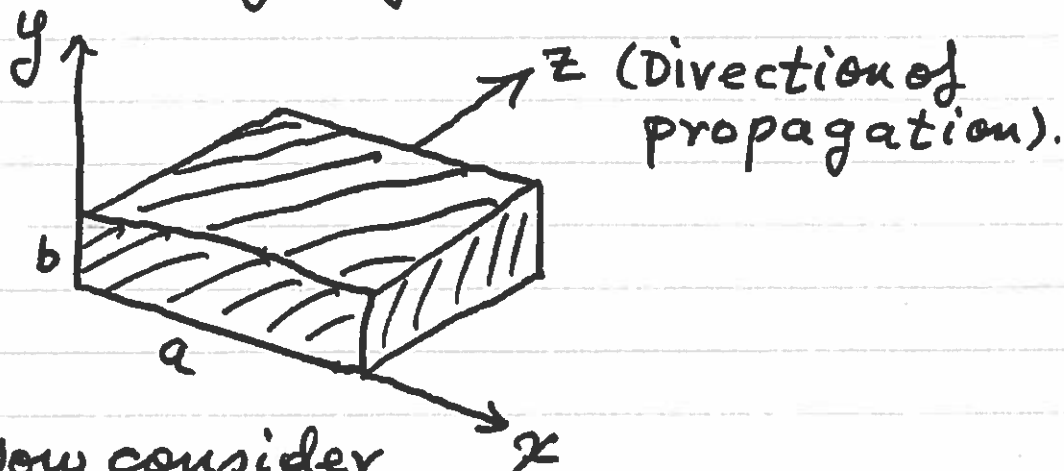 y
z (Direction of
propagation).
b
a
x
Now consider